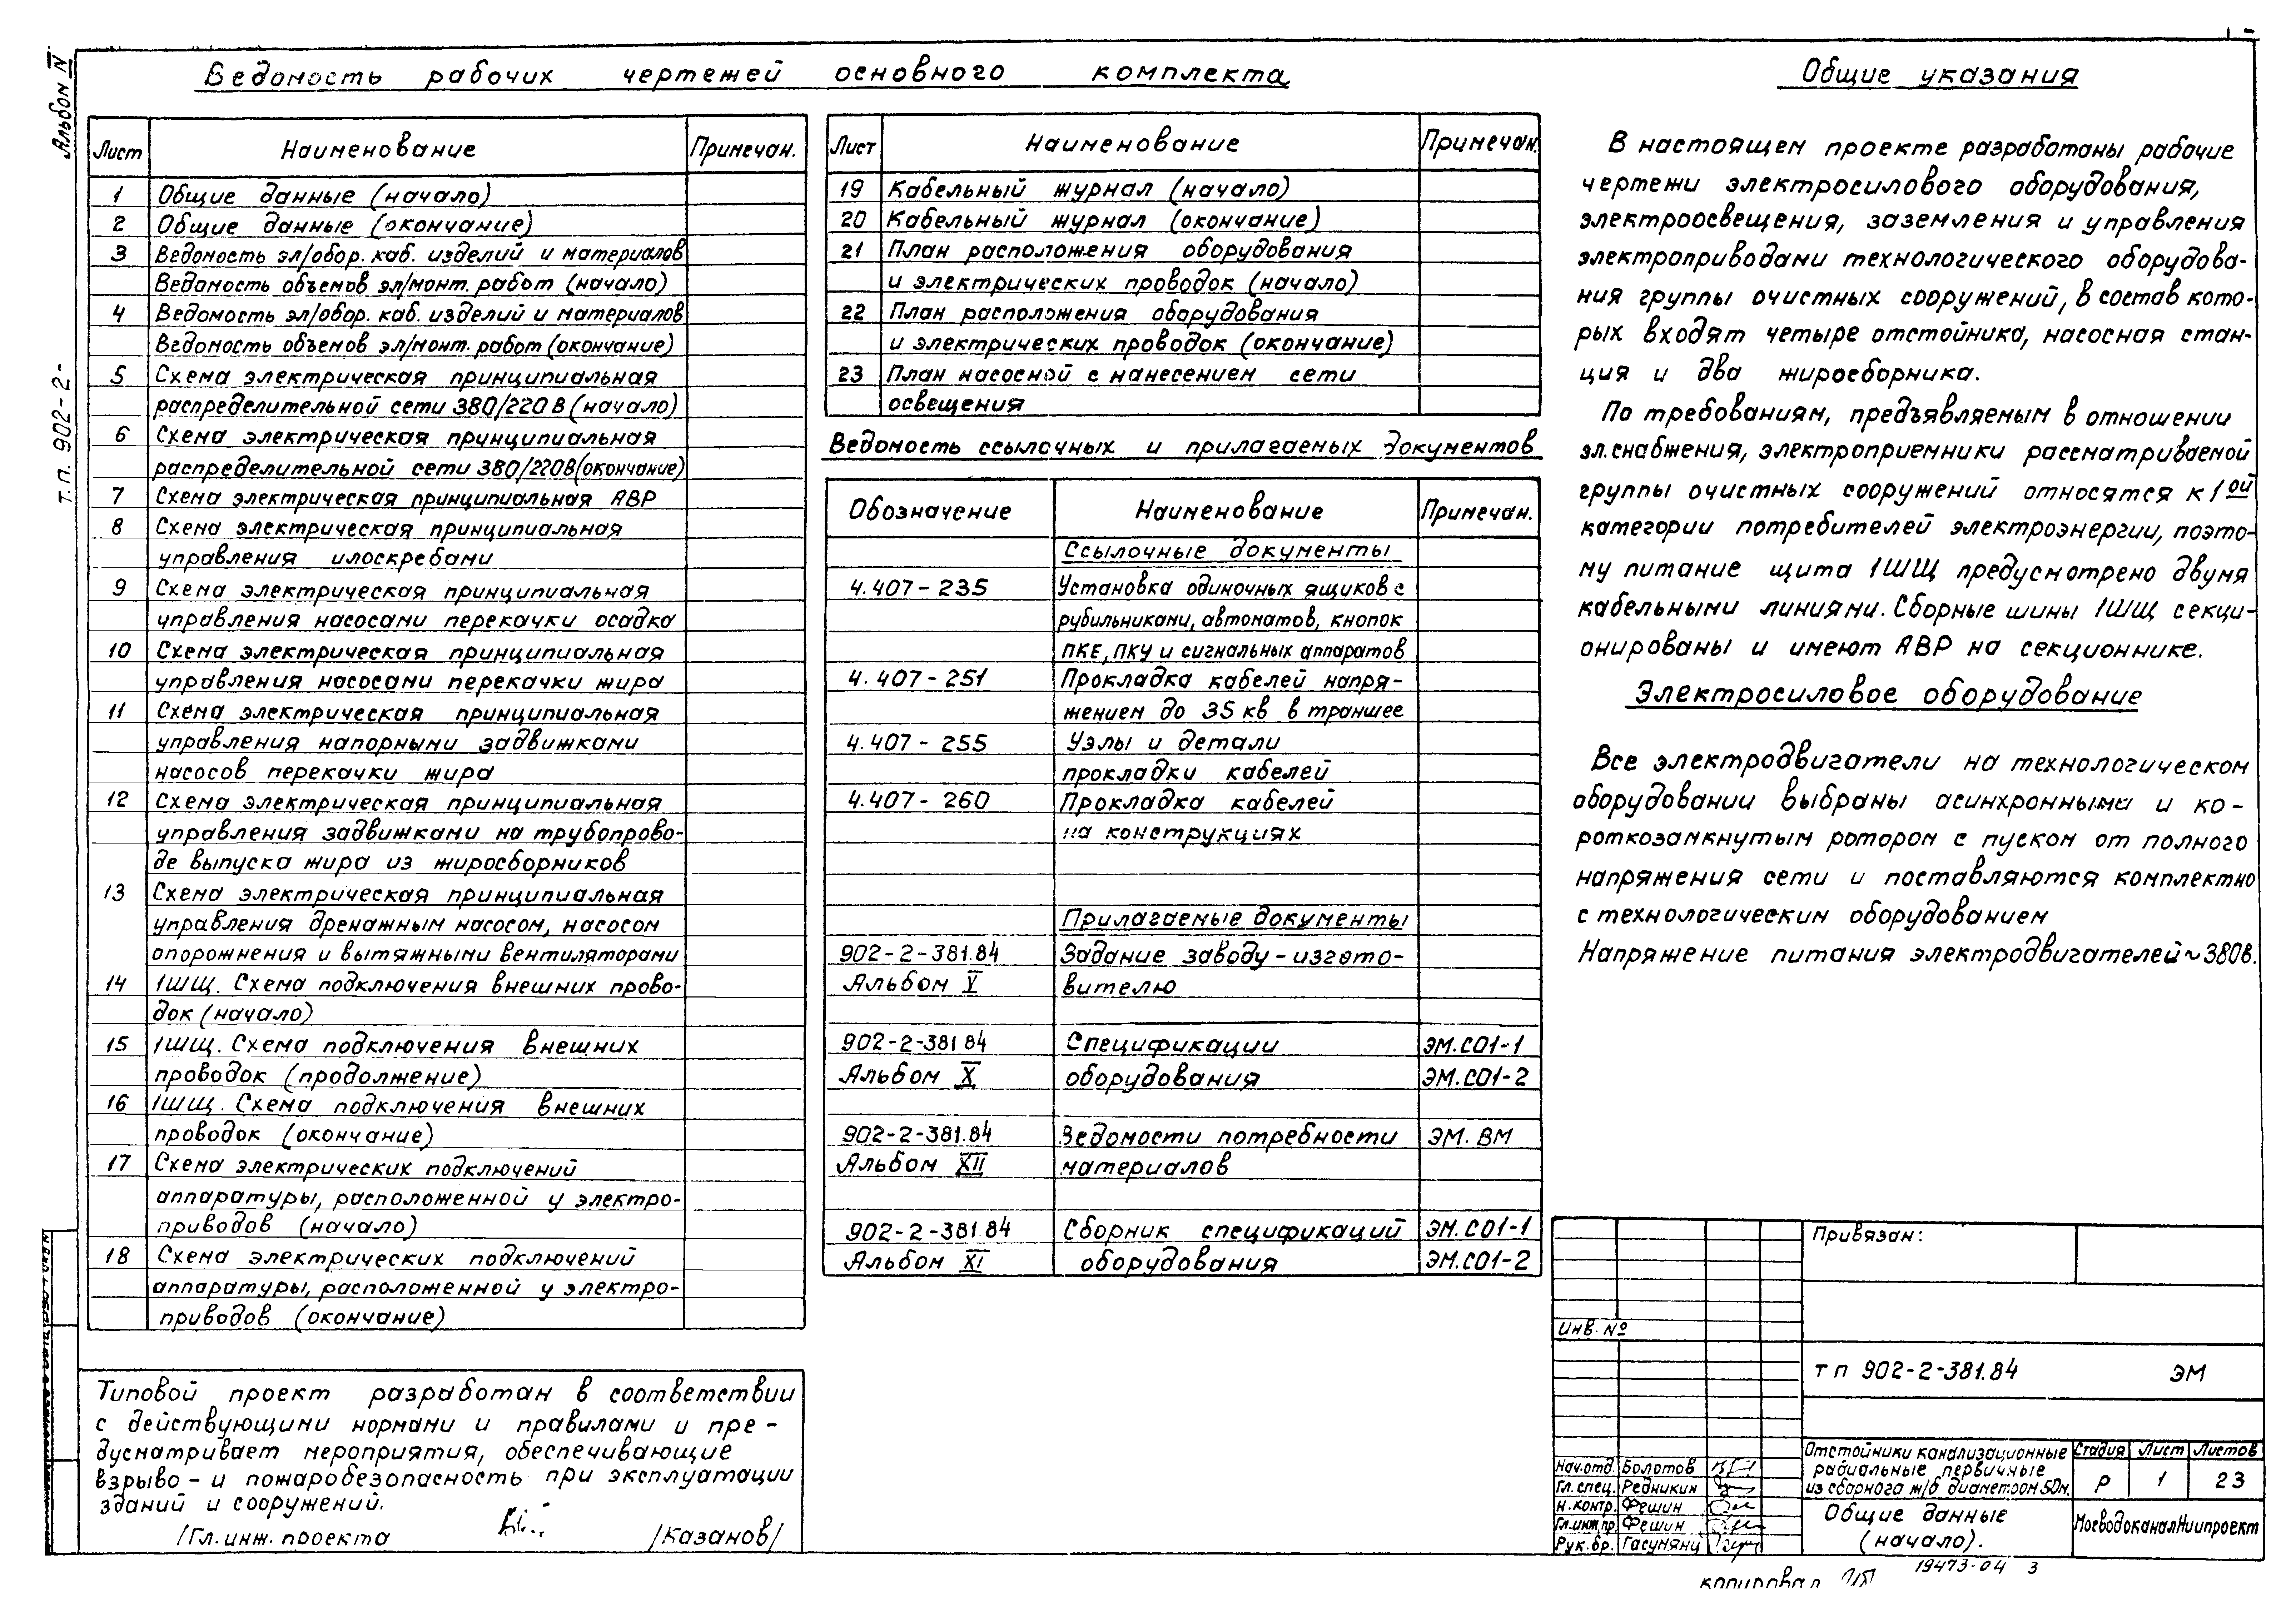 Альбом IV
т.п. 902-2-
Ведомость рабочих чертежей основного комплекта
Лист Наименование Примечан.
1 Общие данные (начало)
2 Общие данные (окончание)
3 Ведомость эл/обор. каб. изделий и материалов
Ведомость объемов эл/монт. работ (начало)
4 Ведомость эл/обор. каб. изделий и материалов
Ведомость объемов эл/монт. работ (окончание)
5 Схема электрическая принципиальная
распределительной сети 380/220 В (начало)
6 Схема электрическая принципиальная
распределительной сети 380/220В (окончание)
7 Схема электрическая принципиальная АВР
8 Схема электрическая принципиальная
управления илоскребами
9 Схема электрическая принципиальная
управления насосами перекачки осадка
10 Схема электрическая принципиальная
управления насосами перекачки жира
11 Схема электрическая принципиальная
управления напорными задвижками
насосов перекачки жира
12 Схема электрическая принципиальная
управления задвижками на трубопрово-
де выпуска жира из жиросборников
13 Схема электрическая принципиальная
управления дренажным насосом, насосом
опорожнения и вытяжными вентиляторами
14 1ШЩ. Схема подключения внешних прово-
док (начало)
15 1ШЩ. Схема подключения внешних
проводок (продолжение)
16 1ШЩ. Схема подключения внешних
проводок (окончание)
17 Схема электрических подключений
аппаратуры, расположенной у электро-
приводов (начало)
18 Схема электрических подключений
аппаратуры, расположенной у электро-
приводов (окончание)
Типовой проект разработан в соответствии
с действующими нормами и правилами и пре-
дусматривает мероприятия, обеспечивающие
взрыво- и пожаробезопасность при эксплуатации
зданий и сооружений.
/Гл. инж. проекта /Казанов/
Лист Наименование Примечан.
19 Кабельный журнал (начало)
20 Кабельный журнал (окончание)
21 План расположения оборудования
и электрических проводок (начало)
22 План расположения оборудования
и электрических проводок (окончание)
23 План насосной с нанесением сети
освещения
Ведомость ссылочных и прилагаемых документов
Обозначение Наименование Примечан.
Ссылочные документы
4.407-235 Установка одиночных ящиков с
рубильниками, автоматов, кнопок
ПКЕ, ПКУ и сигнальных аппаратов
4.407-251 Прокладка кабелей напря-
жением до 35 кв в траншее
4.407-255 Узлы и детали
прокладки кабелей
4.407-260 Прокладка кабелей
на конструкциях
Прилагаемые документы
902-2-381.84 Задание заводу-изгото-
Альбом V вителю
902-2-381.84 Спецификации ЭМ.СО1-1
Альбом X оборудования ЭМ.СО1-2
902-2-381.84 Ведомости потребности ЭМ.ВМ
Альбом XII материалов
902-2-381.84 Сборник спецификаций ЭМ.СО1-1
Альбом XI оборудования ЭМ.СО1-2
Общие указания
В настоящем проекте разработаны рабочие
чертежи электросилового оборудования,
электроосвещения, заземления и управления
электроприводами технологического оборудова-
ния группы очистных сооружений, в состав кото-
рых входят четыре отстойника, насосная стан-
ция и два жиросборника.
По требованиям, предъявляемым в отношении
эл. снабжения, электроприемники рассматриваемой
группы очистных сооружений относятся к 1ой
категории потребителей электроэнергии, поэто-
му питание щита 1ШЩ предусмотрено двумя
кабельными линиями. Сборные шины 1ШЩ секци-
онированы и имеют АВР на секционнике.
Электросиловое оборудование
Все электродвигатели на технологическом
оборудовании выбраны асинхронными и ко-
роткозамкнутым ротором с пуском от полного
напряжения сети и поставляются комплектно
с технологическим оборудованием
Напряжение питания электродвигателей ~380в.
Привязан:
Инв. №
тп 902-2-381.84 ЭМ
Нач.отд. Болотов
Гл. спец. Редникин
Н.контр. Фешин
Гл.инж.пр. Фешин
Рук.бр. Гасумянц
Отстойники канализационные
радиальные первичные
из сборного ж/б диаметром 50м.
Стадия Лист Листов
Р 1 23
Общие данные
(начало).
МосводоканалНиипроект
Копировал
19473-04 3